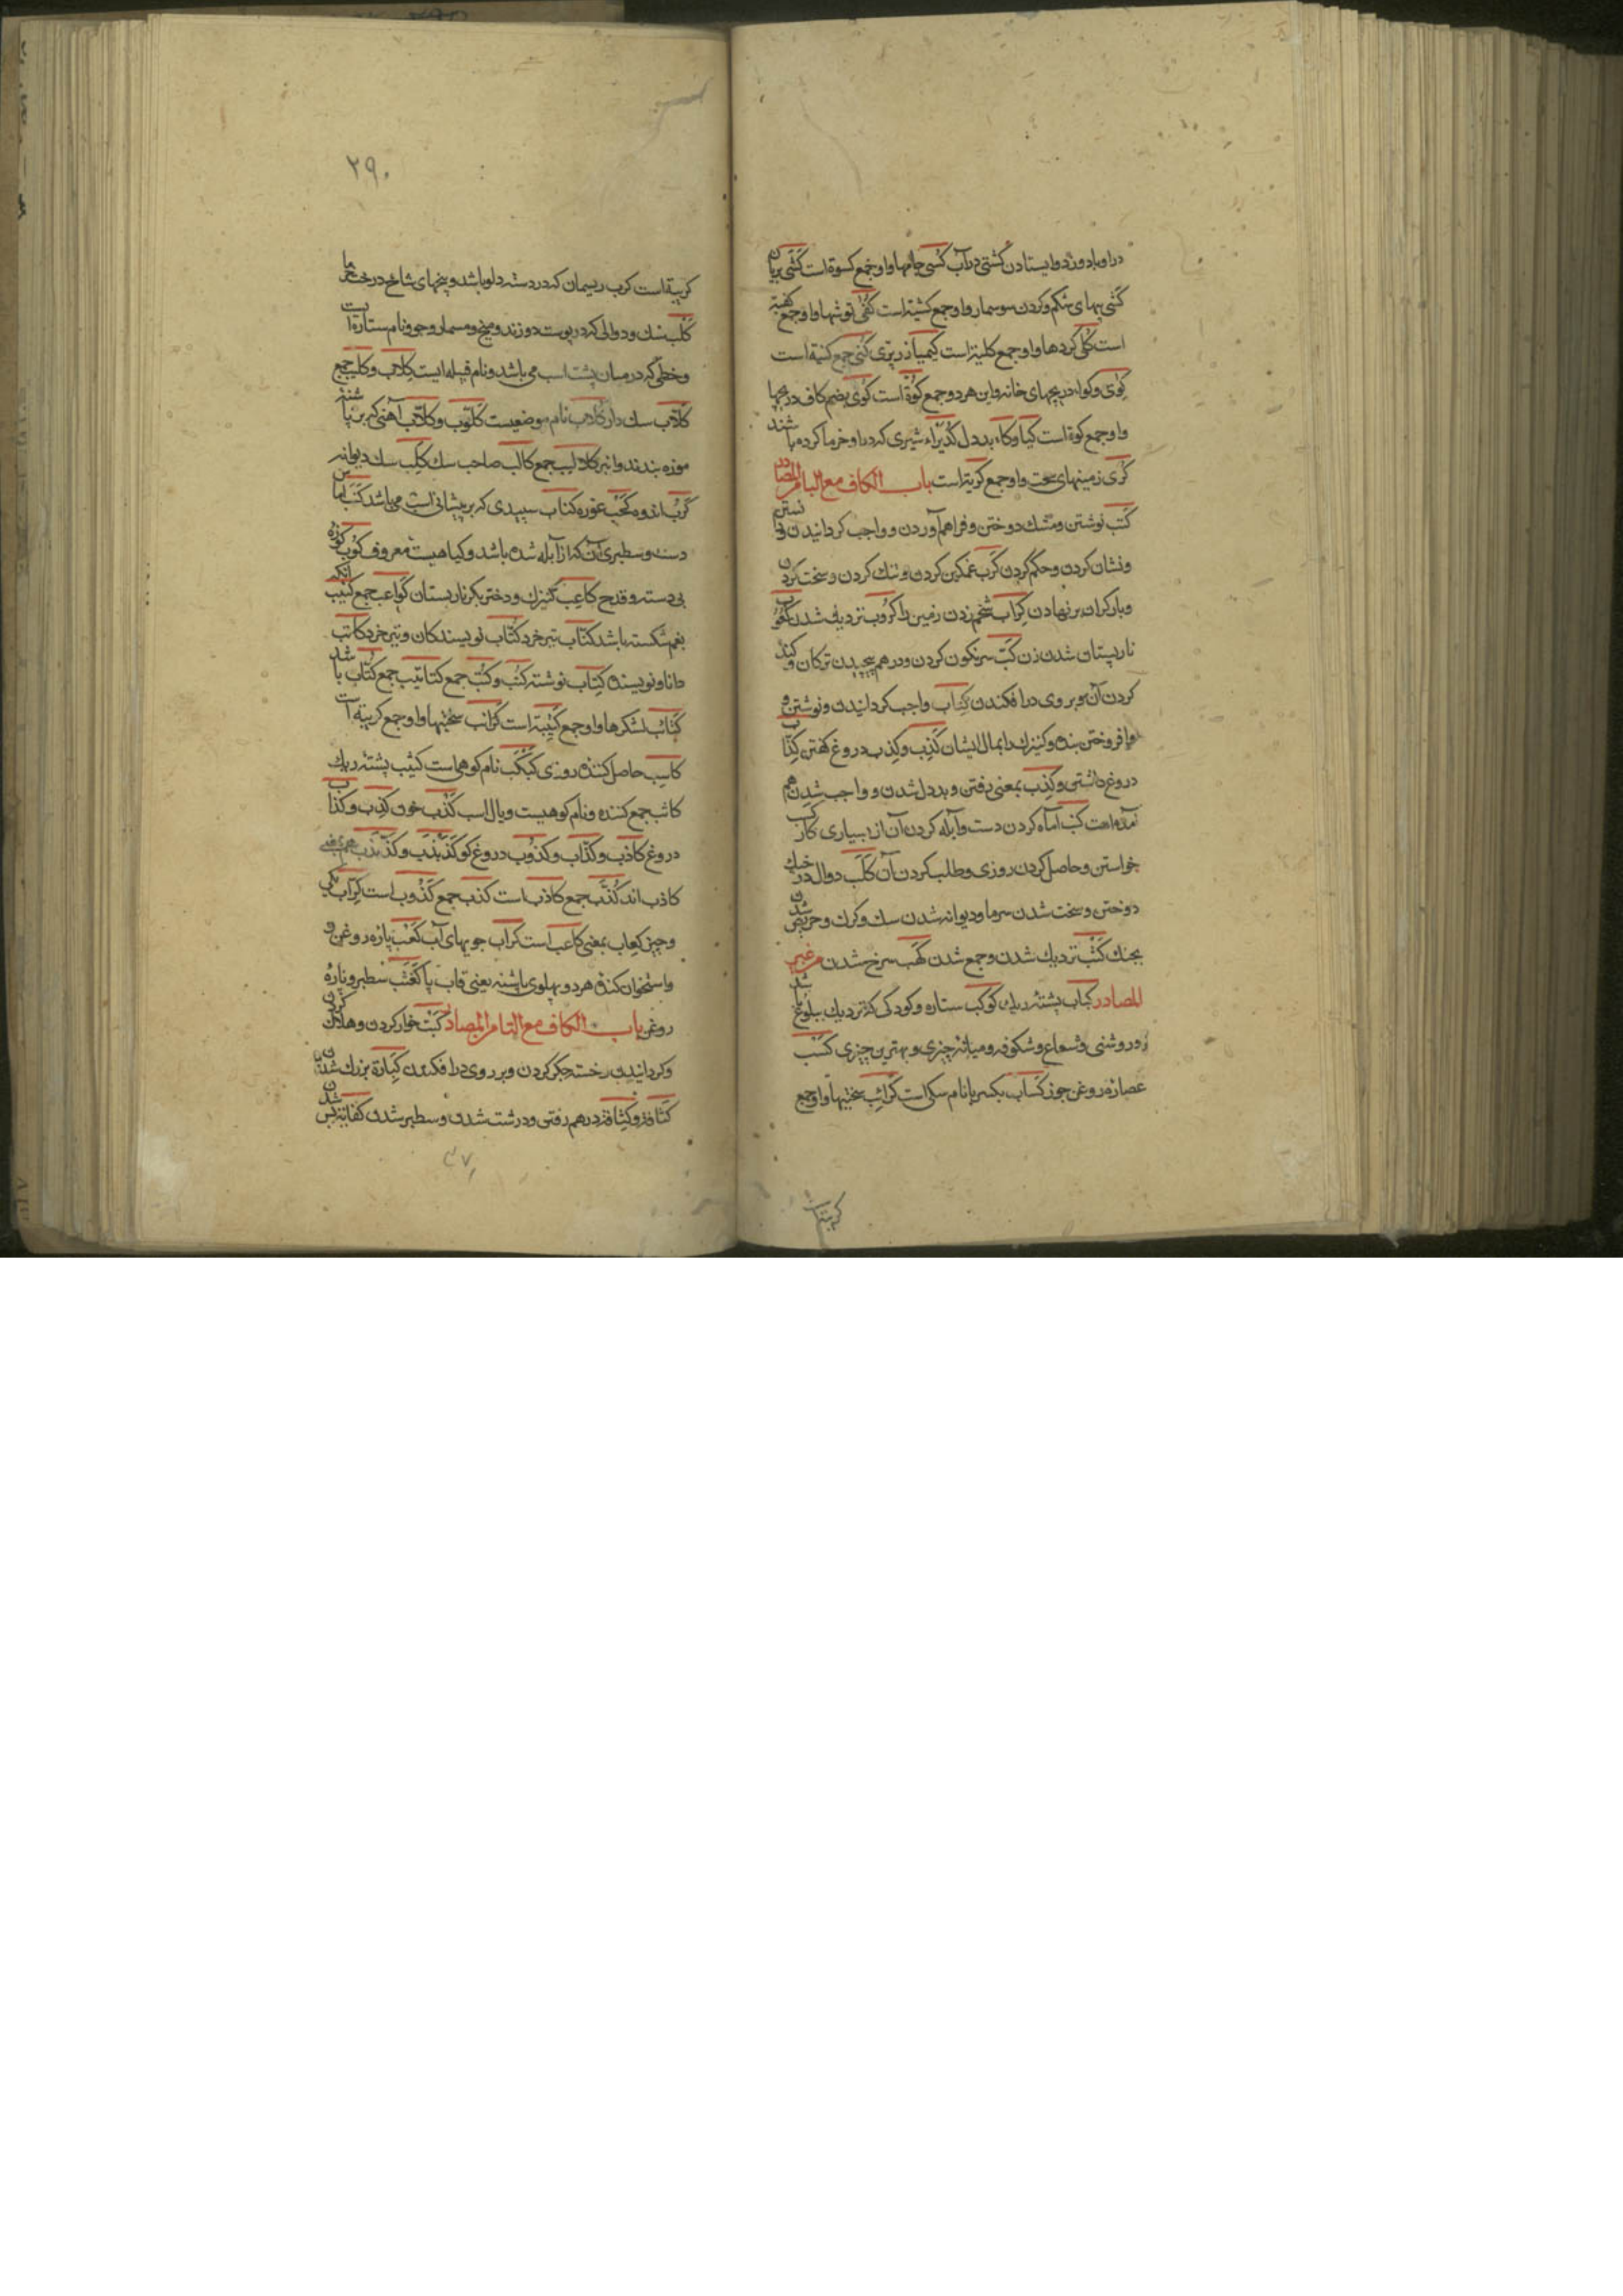 دراو بادوزد و ایستادن کشتی در آب کسی جامها واو جمع کسوة است کشی بریان
کشی پیهای شکم و کردن سوسمار واو جمع کشیة است کفی توشها واو جمع کفیة
است کلی کردها واو جمع کلیة است کیمیا زریزی کنی جمع کنیة است
کوی وکواء دریچهای خانه و این هر دو جمع کوة است کوی بضم کاف دریچها
واو جمع کوة است کیا وکاء بددل کدیراء شیری که در او خرما کرده باشند
کری زمینهای سخت واو جمع کریة است باب الکاف مع البا من المصادر
کتب نوشتن ومشک دوختن وفراهم آوردن و واجب کردانیدن
ونشان کردن وحکم کردن کرب غمکین کردن وتنک کردن وسخت کردن
وبار کران بر نهادن کراب شخم زدن زمین را کروب نزدیک شدن کعوب
نارپستان شدن زن کب سرنکون کردن ودرهم پیچیدن ترکان و کبد
کردن آن وبر وی در افکندن کتاب واجب کردانیدن ونوشتن و
وا فروختن بنده وکنیزک را بمال ایشان کذب وکذب دروغ کفتن کذاب
دروغ داشتن وکذب بمعنی رفتن وبددل شدن و واجب شدن هم
آمده است کنب آماه کردن دست وآبله کردن آن از بسیاری کار کسب
خواستن وحاصل کردن روزی وطلب کردن آن کلب دوال در خیک
دوختن وسخت شدن سرما ودیوانه شدن سک وکرک وحریص شدن
بجنک کثب نزدیک شدن وجمع شدن کهب سرخ شدن من غیر
المصادر کثاب پشته ریک کوکب ستاره وکودکی که نزدیک ببلوغ باشد
و روشنی وشعاع وشکوفه ومیانه چیزی وبهترین چیزی کسب
عصاره روغن جوز کساب بکسر با نام سکی است کرائب سختیها واو جمع
کریبة است
۲۹۰
کریبة است کرب ریسمان که در دسته دلو باشد وبیخهای شاخ درخت خرما
کلب سک ودوالی که در پوست دوزند ومیخ ومسمار وجو ونام ستاره است
وخطی که در میان پشت اسب می باشد ونام قبیله ایست کلاب وکلیب جمع
کلاب سک دار کلاب نام موضعیست کلوب وکلاب آهنی که بر پاشنه
موزه بندند وانبر کلالیب جمع کالب صاحب سک کلب سک دیوانه
کرب اندوه کحب غوره کناب سپیدی که بر پیشانی اسب می باشد کنب آماس
دست وسطبری آن که از آبله شده باشد وکیاهیست معروف کوب کوزه
بی دسته وقدح کاعب کنیزک ودختر بکر نارپستان کواعب جمع کئیب آنکه
بغم شکسته باشد کتاب تیر خرد کتاب نویسندکان وتیر خرد کاتب
دانا ونویسنده کتاب نوشته کتب وکتب جمع کتاتیب جمع کتاب باشد
کتائب لشکرها واو جمع کتیبة است کرائب سختیها واو جمع کریبة است
کاسب حاصل کننده روزی کبکب نام کوهی است کثیب پشته ریک
کاثب جمع کننده ونام کوهیست ویال اسب کذب خون کذب وکذاب
دروغ کاذب وکذاب وکذوب دروغ کو کذبذب وکذبذب هم بمعنی
کاذب اند کذب جمع کاذب است کذب جمع کذوب است کراب
وچیز کعاب بمعنی کاعب است کراب جویهای آب کعب پاره روغن و
واستخوان کنده هر دو پهلوی پاشنه یعنی قاب پا کعثب سطبر وپاره
روغن باب الکاف مع التا من المصادر کبت خوار کردن وهلاک کردن
وکردانیدن وخسته جکر کردن وبر روی در افکندن کبارة بزرک شدن
کثافة وکثافة درهم رفتن ودرشت شدن وسطبر شدن کفایة بس شدن